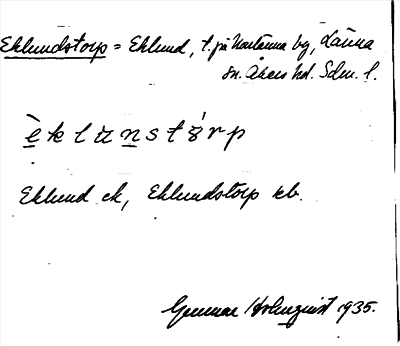 Eklundstorp = Eklund, t. på Härtunna bg, Länna
sn. Åkers hd. Sdm. l.
èklunstǿrp
Eklund ek, Eklundstorp kb.
Gunnar Holmquist 1935.